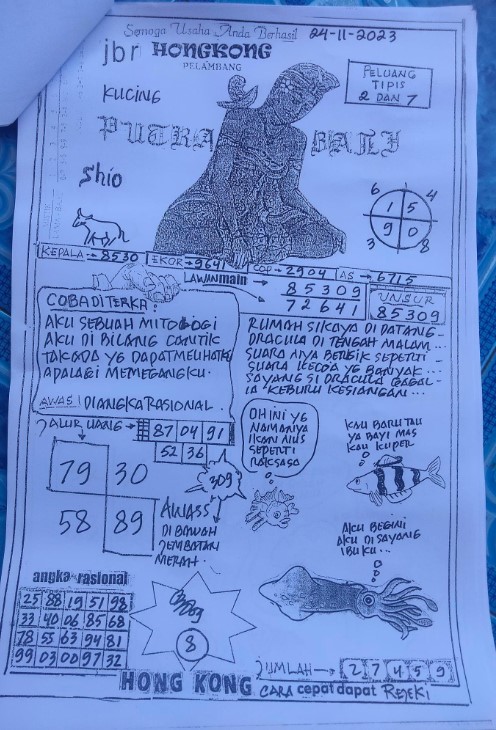 Semoga Usaha Anda Berhasil
24-11-2023
jbr HONGKONG
PELAMBANG
PELUANG
TIPIS
2 DAN 7
KUCING
PUTRA BALI
Shio
6 4
1 5
9 0
3 8
KEPALA→8530 EKOR→9641 COP→2904 AS→6715
LAWANmain
85309
72641
UNSUR
85309
COBA DITERKA:
AKU SEBUAH MITOLOGI
AKU DI BILANG CANTIK
TAKADA YG DAPAT MELIHATKU
APALAGI MEMEGANGKU.
AWAS! DIANGKA RASIONAL.
RUMAH SIKAYA DI DATANG-
DRACULA DI TENGAH MALAM...
SUARA NYA BERISIK SEPERTI -
SUARA KECOA YG BANYAK...
SAYANG SI DRACULA GAGAL-
IA KEBURU KESIANGAN...
JALUR UANG→ 87 04 91
52 36
309
79 30
58 89
AWASS
DI BAWAH
JEMBATAN
MERAH.
OH INI YG
NAMANYA
IKAN NIUS
SEPERTI
RAKSASA
KAU BARU TAU
YA BAYI MAS
KAU KUPER
AKU BEGINI
AKU DI SAYANG
IBU KU...
angka rasional
25 88 19 51 98
33 40 06 85 68
78 55 63 94 81
99 03 00 97 32
8
JUMLAH→ 2 7 4 5 9
HONG KONG CARA cepat dapat REJEKI